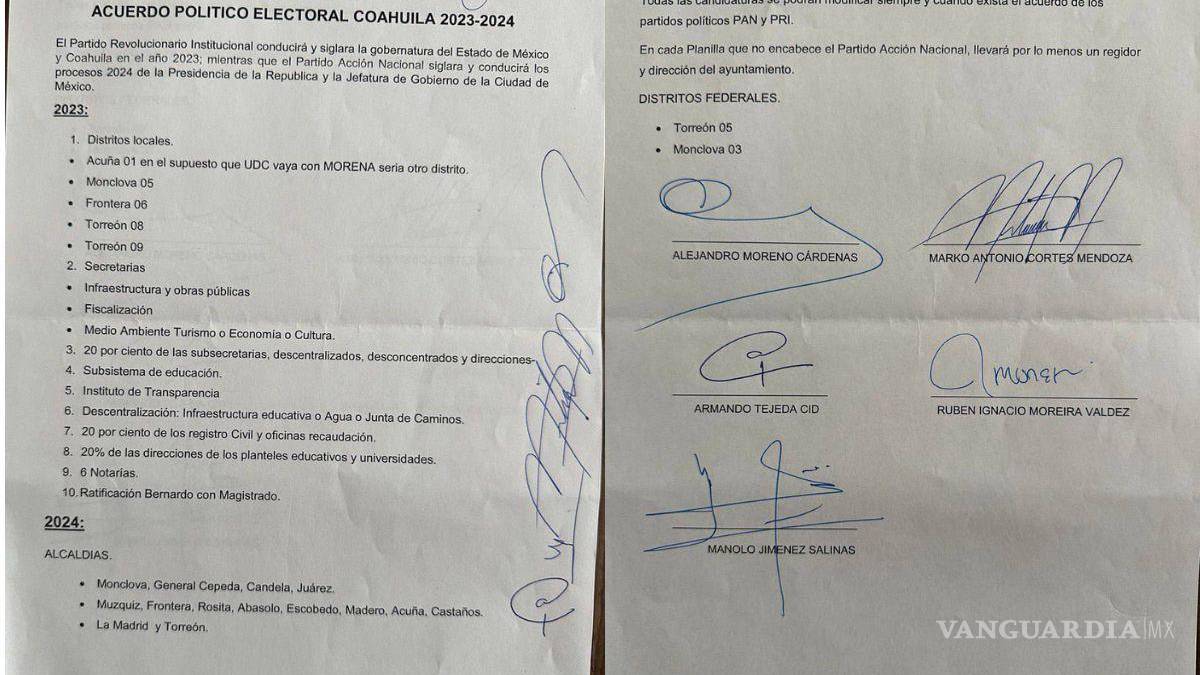 ACUERDO POLITICO ELECTORAL COAHUILA 2023-2024
El Partido Revolucionario Institucional conducirá y siglara la gobernatura del Estado de México
y Coahuila en el año 2023; mientras que el Partido Acción Nacional siglara y conducirá los
procesos 2024 de la Presidencia de la Republica y la Jefatura de Gobierno de la Ciudad de
México.
2023:
1. Distritos locales.
• Acuña 01 en el supuesto que UDC vaya con MORENA seria otro distrito.
• Monclova 05
• Frontera 06
• Torreón 08
• Torreón 09
2. Secretarias
• Infraestructura y obras públicas
• Fiscalización
• Medio Ambiente Turismo o Economía o Cultura.
3. 20 por ciento de las subsecretarias, descentralizados, desconcentrados y direcciones
4. Subsistema de educación.
5. Instituto de Transparencia
6. Descentralización: Infraestructura educativa o Agua o Junta de Caminos.
7. 20 por ciento de los registro Civil y oficinas recaudación.
8. 20% de las direcciones de los planteles educativos y universidades.
9. 6 Notarías.
10. Ratificación Bernardo con Magistrado.
2024:
ALCALDIAS.
• Monclova, General Cepeda, Candela, Juárez.
• Muzquiz, Frontera, Rosita, Abasolo, Escobedo, Madero, Acuña, Castaños.
• La Madrid y Torreón.
Todas las candidaturas se podrán modificar siempre y cuando exista el acuerdo de los
partidos políticos PAN y PRI.
En cada Planilla que no encabece el Partido Acción Nacional, llevará por lo menos un regidor
y dirección del ayuntamiento.
DISTRITOS FEDERALES.
• Torreón 05
• Monclova 03
ALEJANDRO MORENO CÁRDENAS
MARKO ANTONIO CORTES MENDOZA
ARMANDO TEJEDA CID
RUBEN IGNACIO MOREIRA VALDEZ
MANOLO JIMENEZ SALINAS
VANGUARDIA|MX